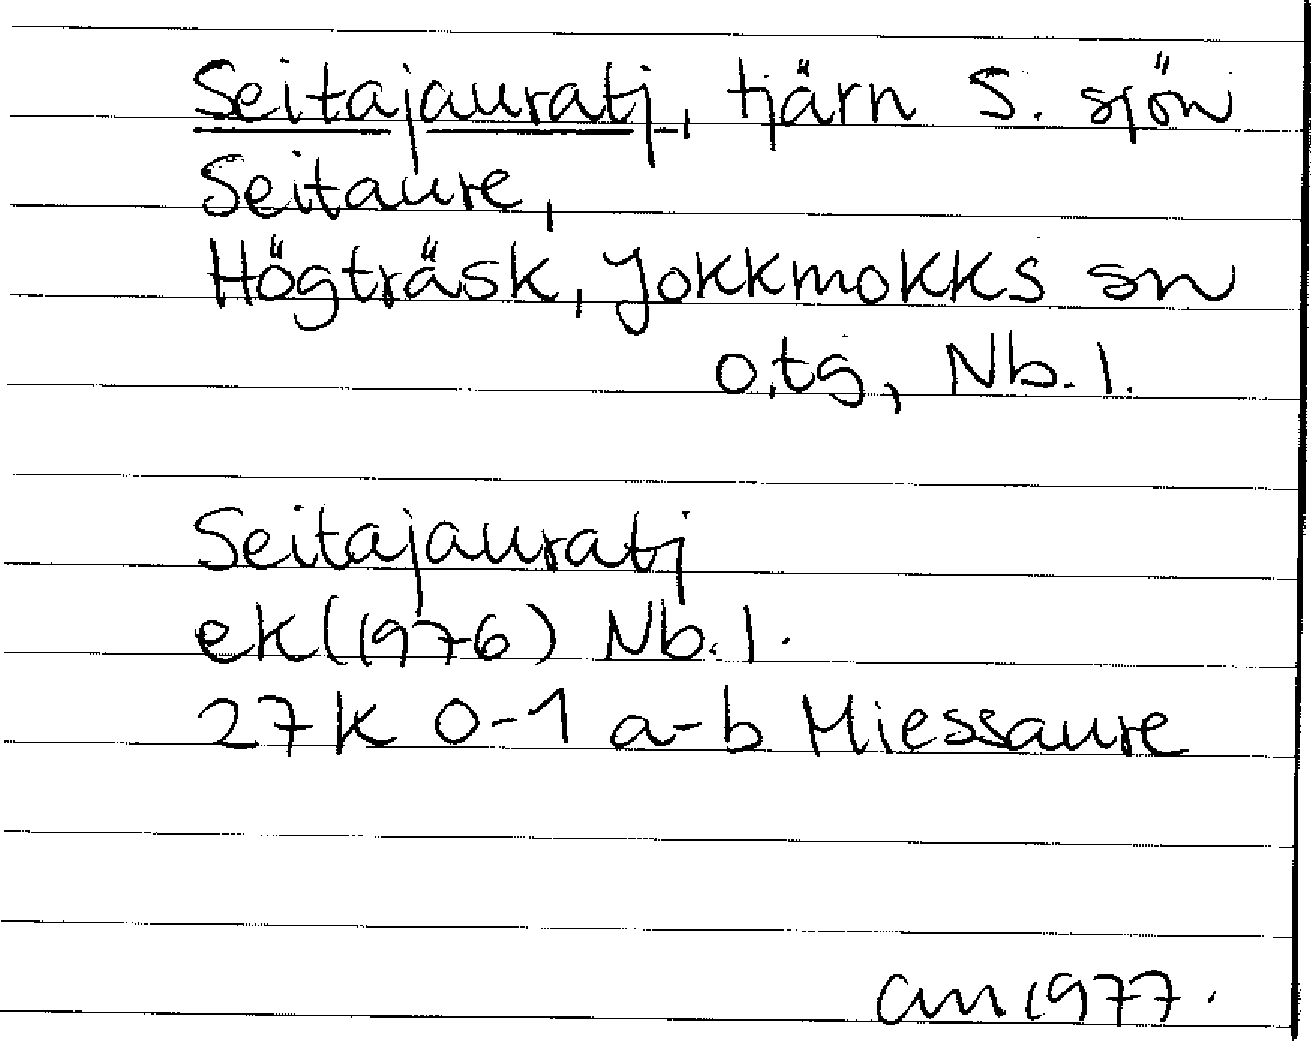 Seitajauratj, tjärn S. sjön
Seitaure,
Högträsk, Jokkmokks sn
o. tg, Nb. l.
Seitajauratj
ek (1976) Nb. l.
27 K 0-1 a-b Miessaure
am 1977.